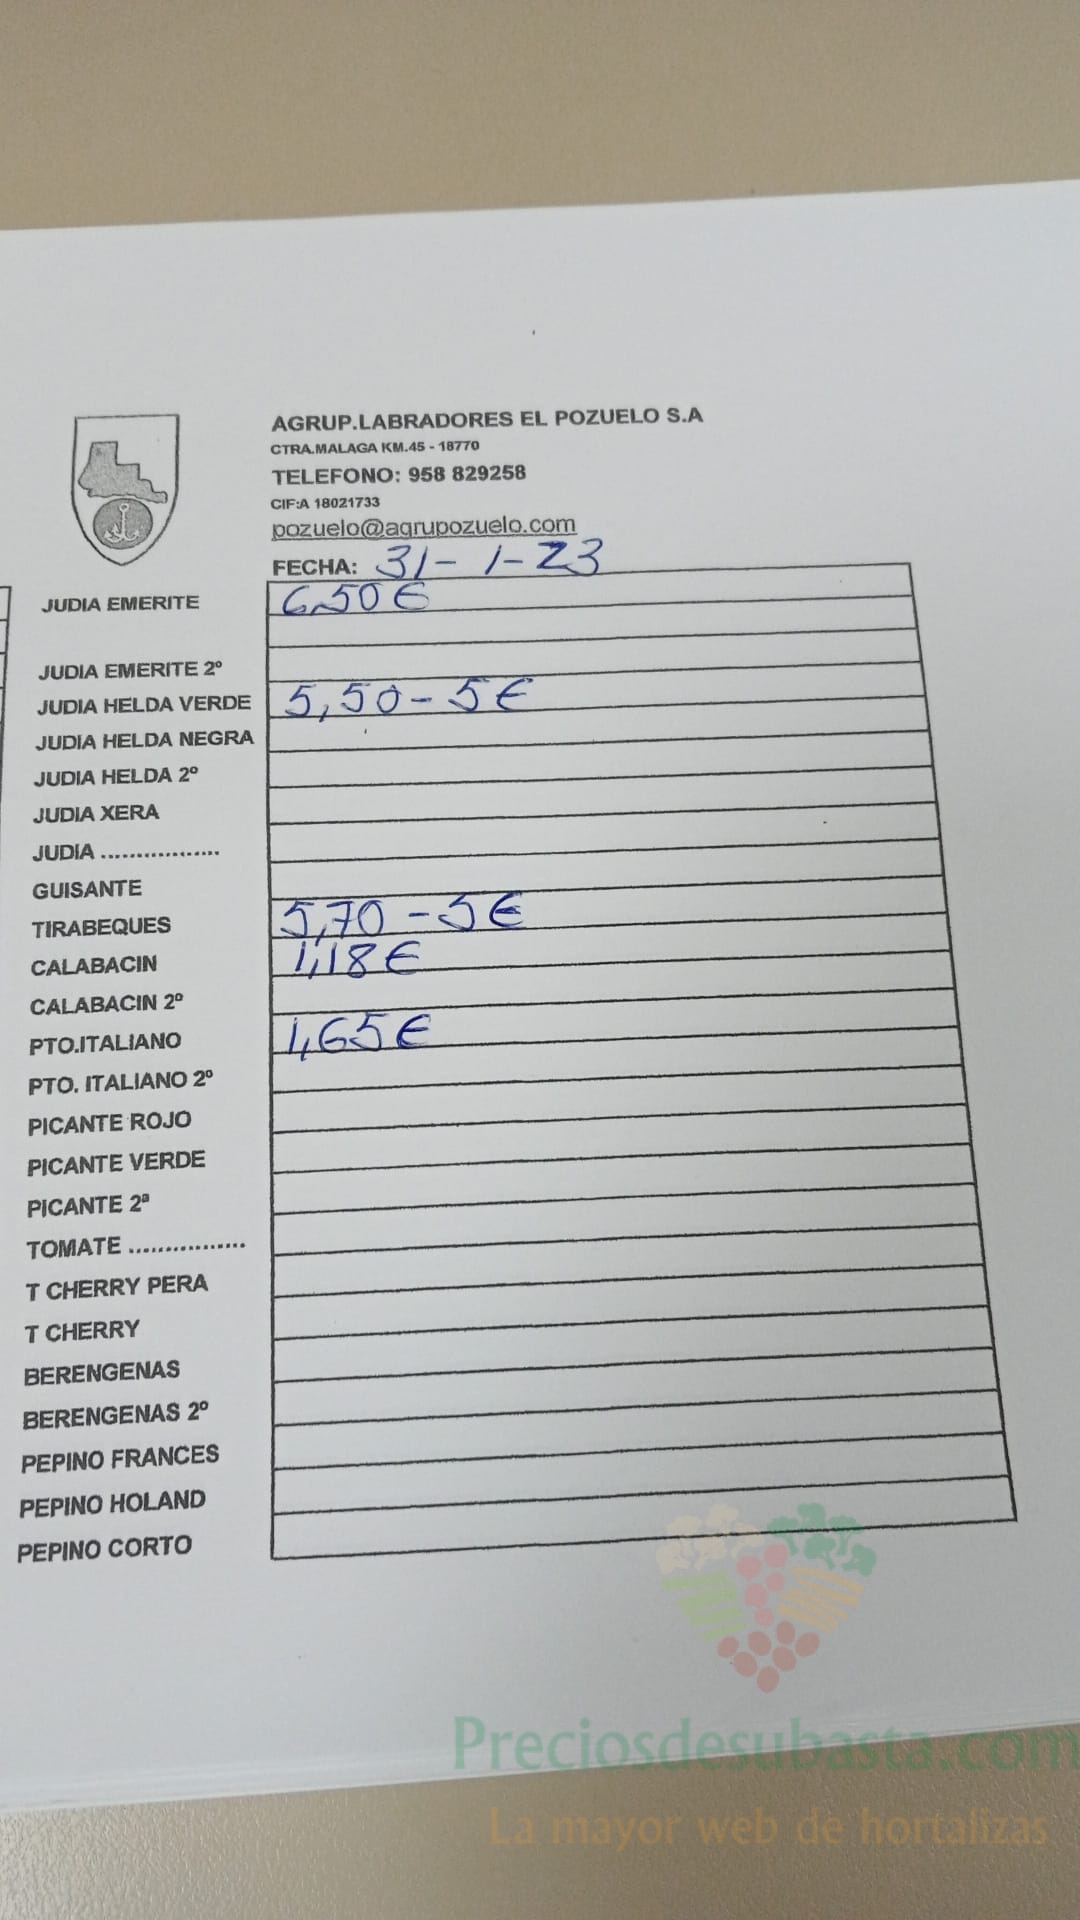 AGRUP.LABRADORES EL POZUELO S.A
CTRA.MALAGA KM.45 - 18770
TELEFONO: 958 829258
CIF:A 18021733
pozuelo@agrupozuelo.com
FECHA: 31-1-23
JUDIA EMERITE 6,50€
JUDIA EMERITE 2º
JUDIA HELDA VERDE 5,50-5€
JUDIA HELDA NEGRA
JUDIA HELDA 2º
JUDIA XERA
JUDIA .................
GUISANTE
TIRABEQUES 5,70-5€
CALABACIN 1,18€
CALABACIN 2º
PTO.ITALIANO 1,65€
PTO. ITALIANO 2º
PICANTE ROJO
PICANTE VERDE
PICANTE 2ª
TOMATE ................
T CHERRY PERA
T CHERRY
BERENGENAS
BERENGENAS 2º
PEPINO FRANCES
PEPINO HOLAND
PEPINO CORTO
Preciosdesubasta.com
La mayor web de hortalizas